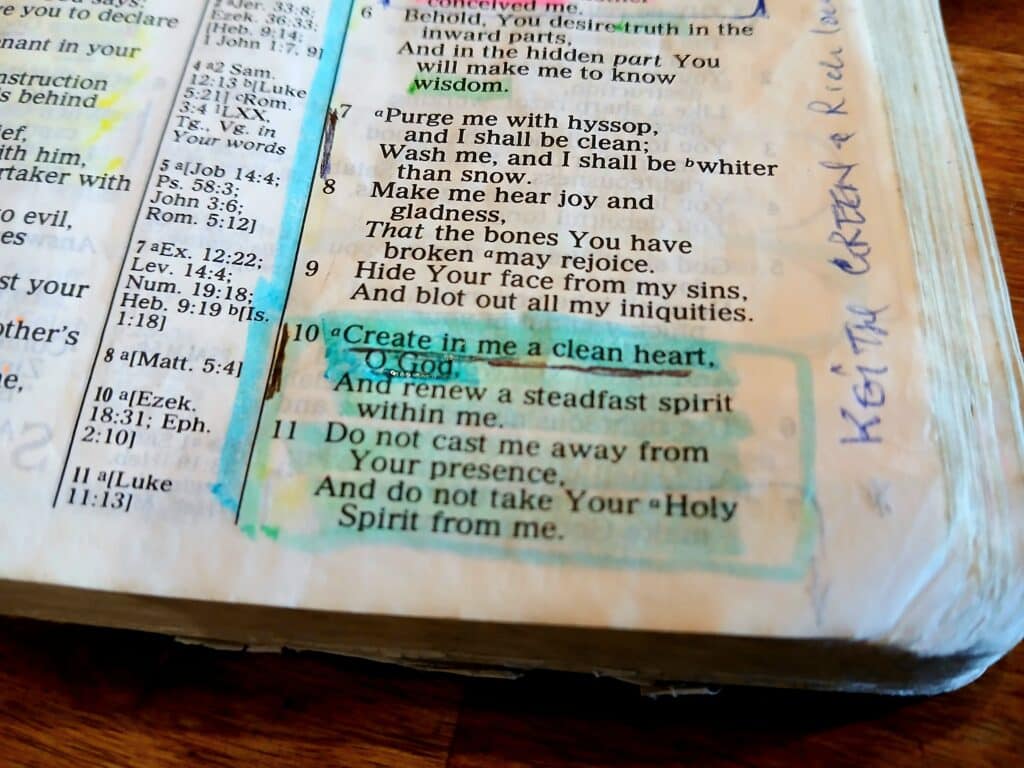 says:
ve you to declare
nant in your
nstruction
s behind
ief,
ith him,
rtaker with
to evil,
es
st your
other's
ne,
Jer. 33:8;
Ezek. 36:33;
[Heb. 9:14;
1 John 1:7, 9]
4 a2 Sam.
12:13 b[Luke
5:21] cRom.
3:4 1LXX,
Tg., Vg. in
Your words
5 a[Job 14:4;
Ps. 58:3;
John 3:6;
Rom. 5:12]
7 aEx. 12:22;
Lev. 14:4;
Num. 19:18;
Heb. 9:19 b[Is.
1:18]
8 a[Matt. 5:4]
10 a[Ezek.
18:31; Eph.
2:10]
11 a[Luke
11:13]
conceived me.
6 Behold, You desire truth in the
inward parts,
And in the hidden part You
will make me to know
wisdom.
7 aPurge me with hyssop,
and I shall be clean;
Wash me, and I shall be bwhiter
than snow.
8 Make me hear joy and
gladness,
That the bones You have
broken amay rejoice.
9 Hide Your face from my sins,
And blot out all my iniquities.
10 aCreate in me a clean heart,
O God,
And renew a steadfast spirit
within me.
11 Do not cast me away from
Your presence,
And do not take Your aHoly
Spirit from me.
KEITH GREEN & Rich